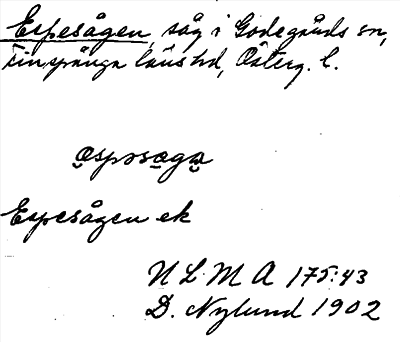 Espesågen, såg i Godegårds sn,
Finspånga länshd, Österg. l.
Espesågen ek
U L M A 175:43
D. Nylund 1902